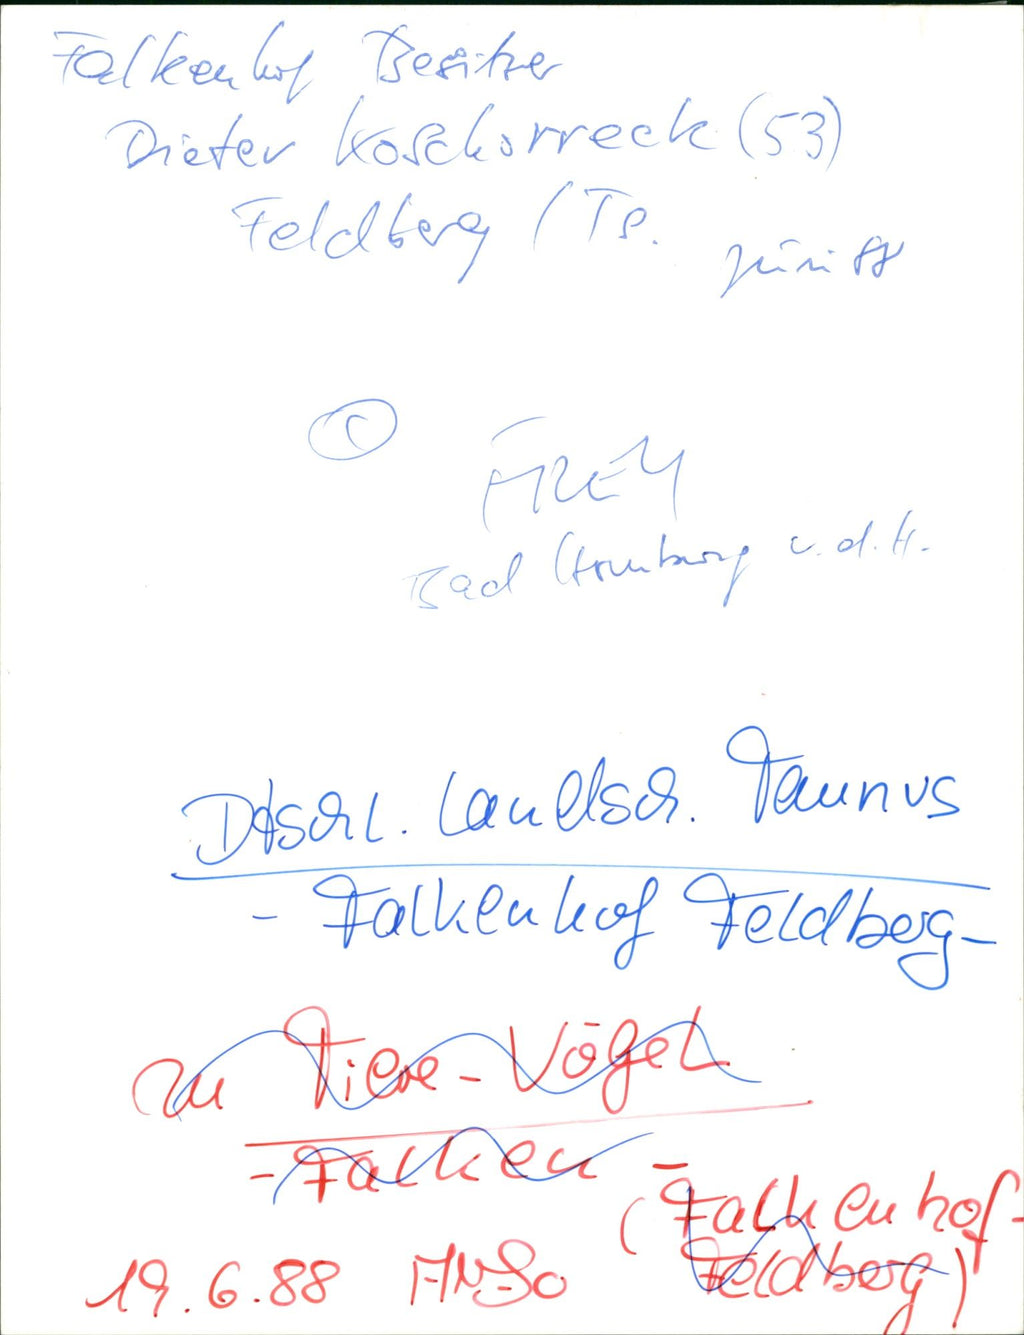 Falkenhof Besitzer
Dieter Koschorreck (53)
Feldberg / Ts.
Juni 88
©
FREY
Bad Homburg v.d.H.
Dtschl. Landsch. Taunus
- Falkenhof Feldberg -
zu Tiere - Vögel
- Falken -
(Falkenhof -
Feldberg)
19.6.88